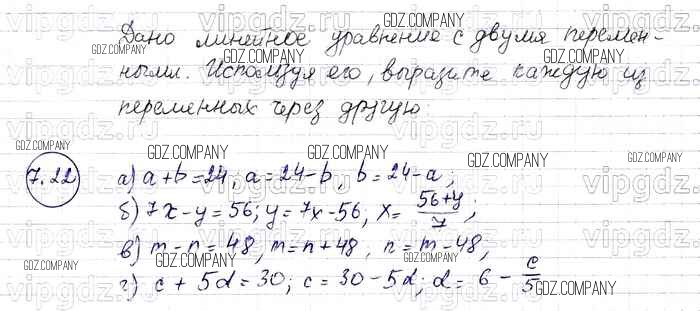 Дано линейное уравнение с двумя перемен-
ными. Используя его, выразите каждую из
переменных через другую.
7.22
а) a + b = 24, a = 24 - b, b = 24 - a;
б) 7x - y = 56; y = 7x - 56, x = \frac{56+y}{7};
в) m - n = 48, m = n + 48, n = m - 48,
г) c + 5d = 30; c = 30 - 5d; d = 6 - \frac{c}{5}
GDZ.COMPANY
GDZ.COMPANY
GDZ.COMPANY
GDZ.COMPANY
GDZ.COMPANY
GDZ.COMPANY
GDZ.COMPANY
GDZ.COMPANY
GDZ.COMPANY
GDZ.COMPANY
GDZ.COMPANY
GDZ.COMPANY
vipgdz.ru
vipgdz.ru
vipgdz.ru